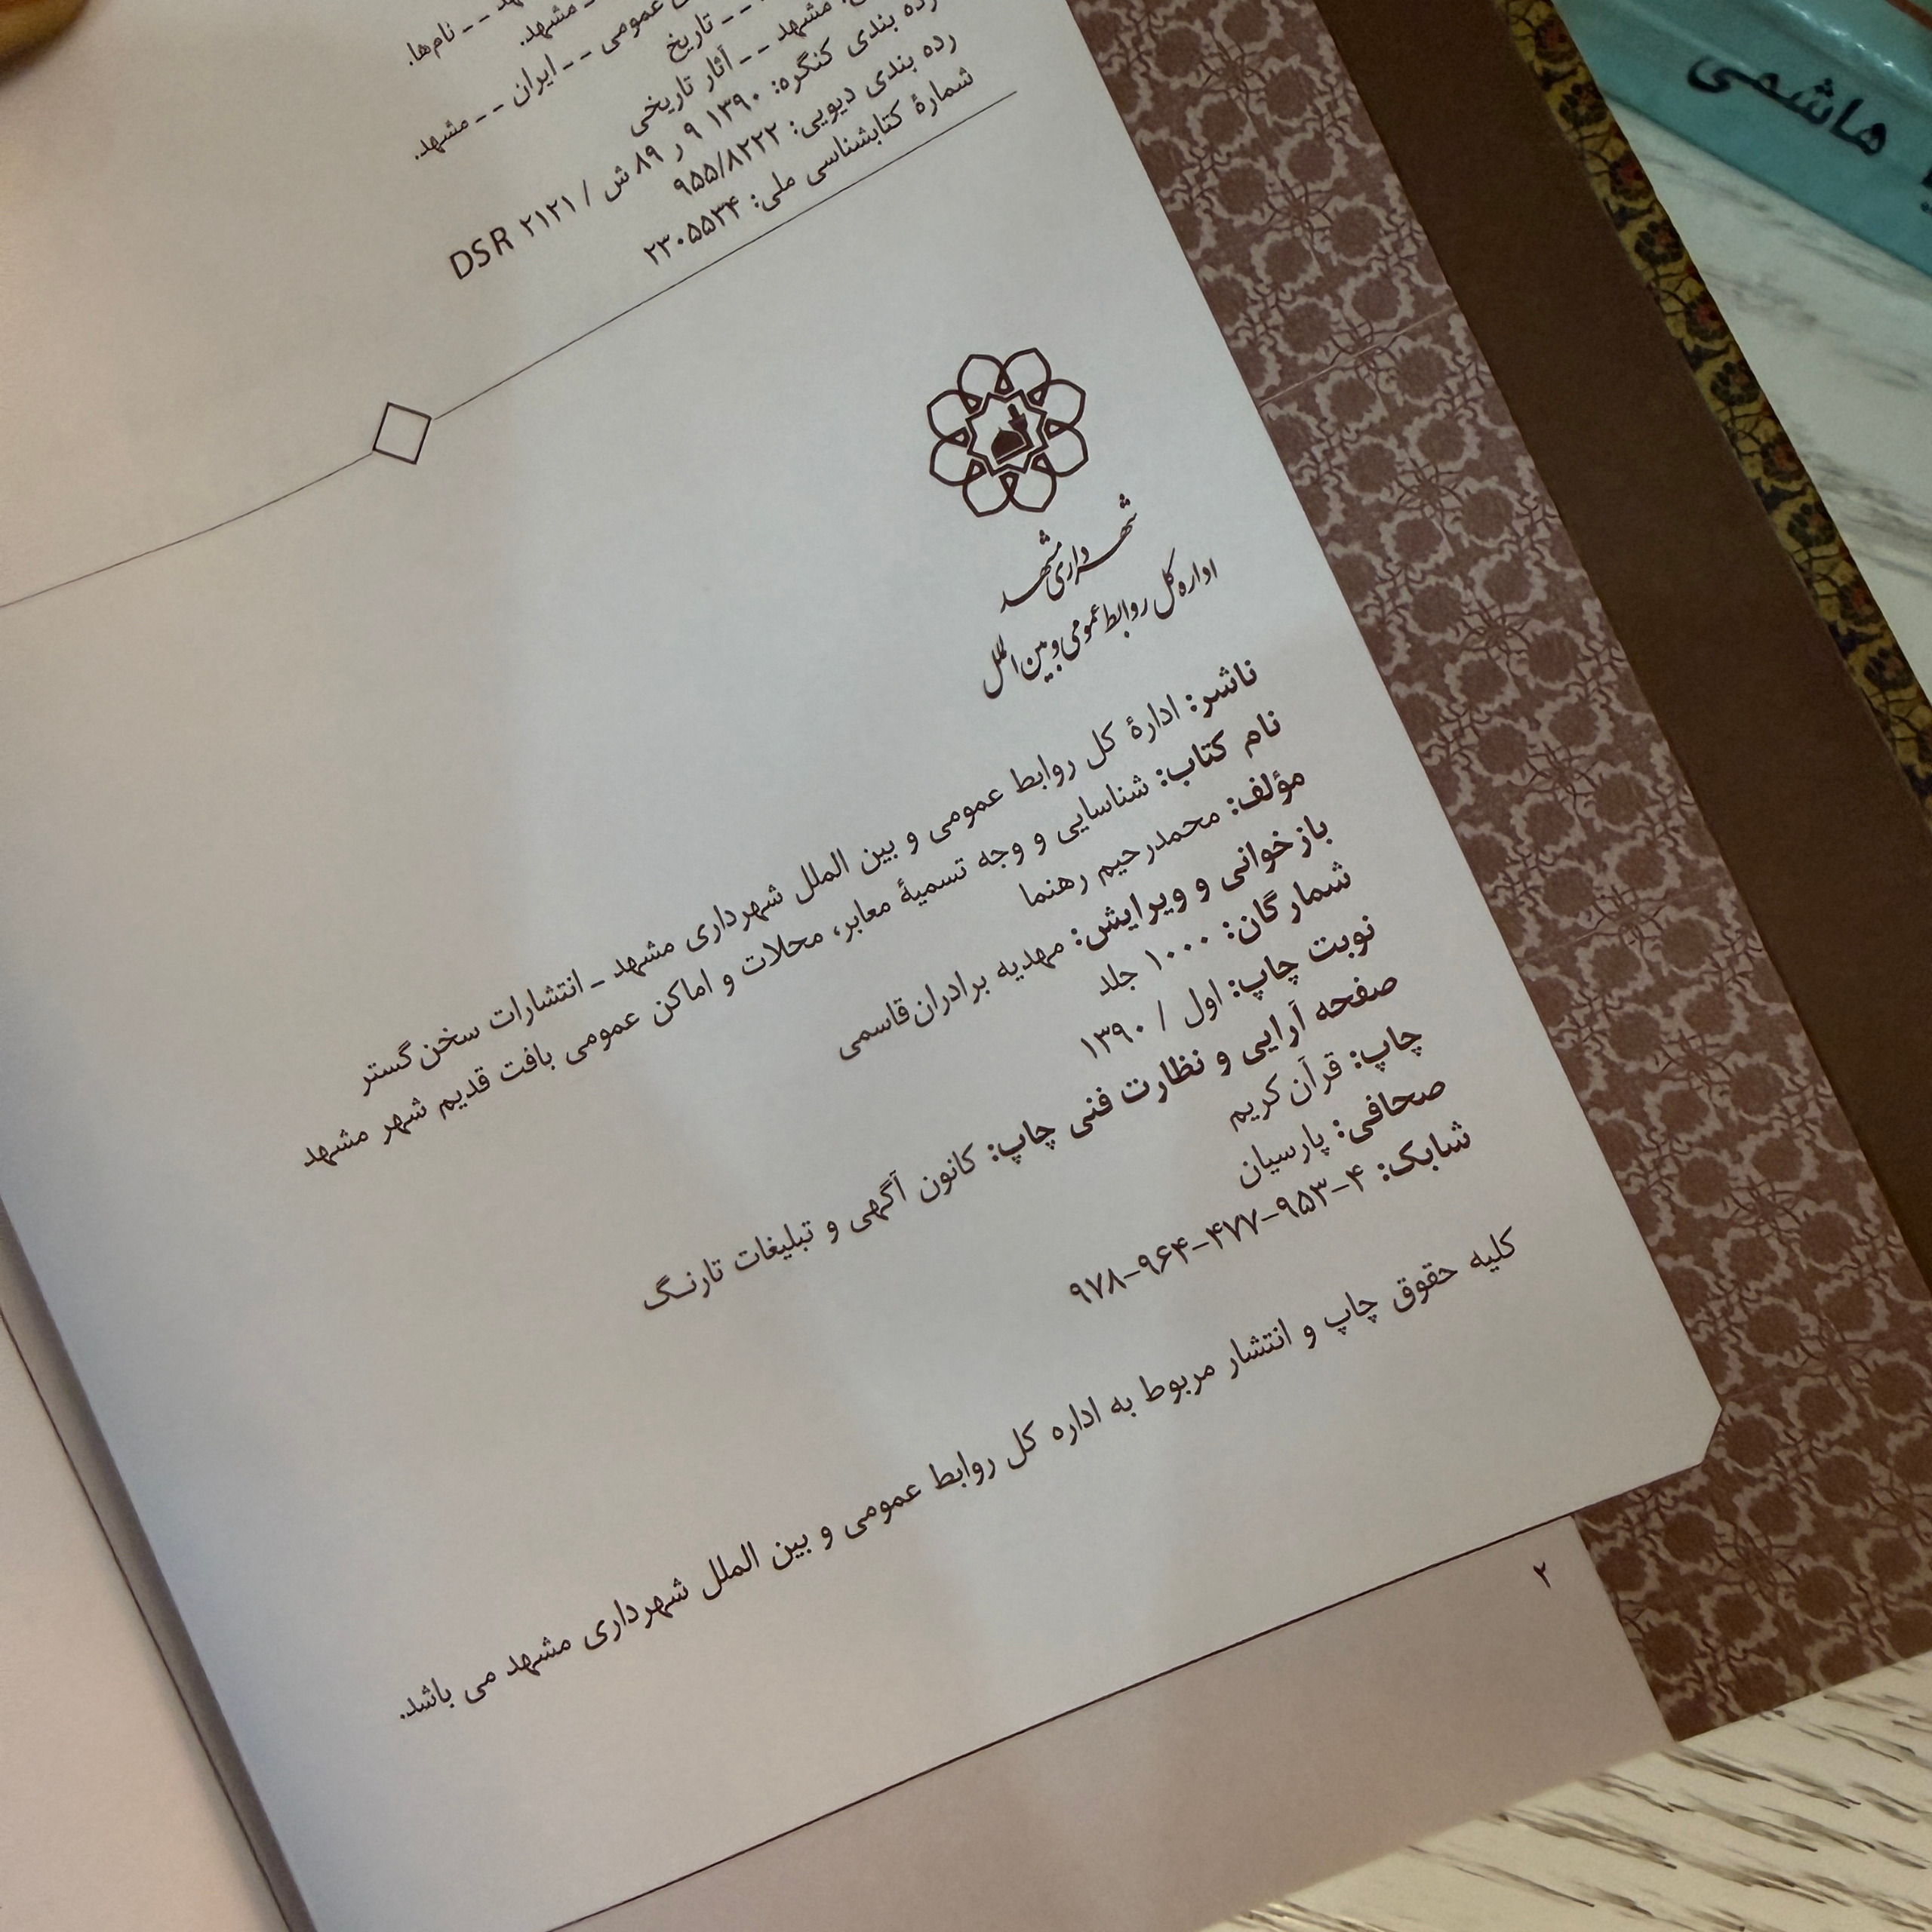 ـ ـ نام‌ها.
مشهد.
عمومی ـ ـ ایران ـ ـ مشهد.
ـ ـ تاریخ
مشهد ـ ـ آثار تاریخی
رده بندی کنگره: ۱۳۹۰ ۹ر ۸۹ ش / DSR ۲۱۲۱
رده بندی دیویی: ۹۵۵/۸۲۲۲
شمارهٔ کتابشناسی ملی: ۲۳۰۵۵۳۴
شهرداری مشهد
اداره کل روابط عمومی و بین الملل
ناشر: ادارهٔ کل روابط عمومی و بین الملل شهرداری مشهد ـ انتشارات سخن‌گستر
نام کتاب: شناسایی و وجه تسمیهٔ معابر، محلات و اماکن عمومی بافت قدیم شهر مشهد
مؤلف: محمدرحیم رهنما
بازخوانی و ویرایش: مهدیه برادران‌قاسمی
شمارگان: ۱۰۰۰ جلد
نوبت چاپ: اول / ۱۳۹۰
صفحه آرایی و نظارت فنی چاپ: کانون آگهی و تبلیغات تارنگ
چاپ: قرآن‌کریم
صحافی: پارسیان
شابک: ۴-۹۵۳-۴۷۷-۹۶۴-۹۷۸
کلیه حقوق چاپ و انتشار مربوط به اداره کل روابط عمومی و بین الملل شهرداری مشهد می باشد.
۲
هاشمی